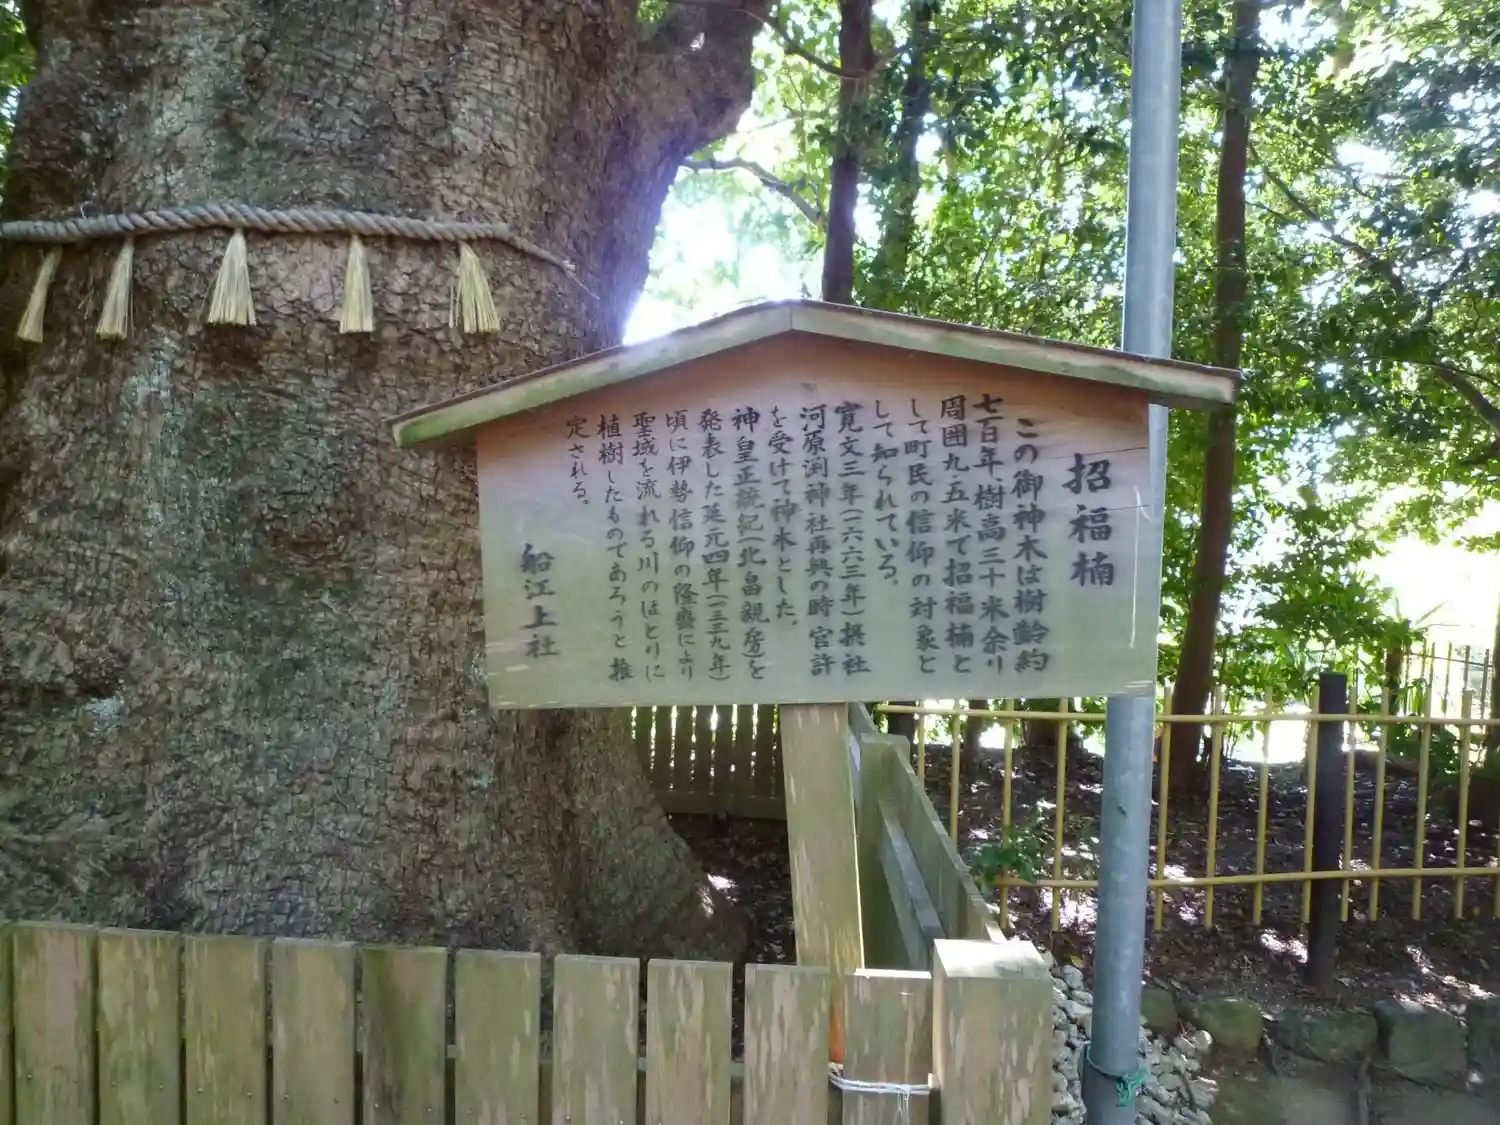 招福楠
この御神木は樹齢約
七百年、樹高三十米余り
周囲九・五米で招福楠と
して町民の信仰の対象と
して知られている。
寛文三年(一六六三年)摂社
河原渕神社再興の時官許
を受けて神木とした。
神皇正統紀(北畠親房)を
発表した延元四年(一三三九年)
頃に伊勢信仰の隆盛により
聖域を流れる川のほとりに
植樹したものであろうと推
定される。
船江上社